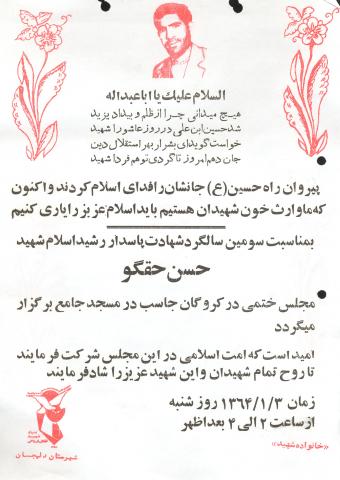 السلام علیك یا اباعبدالله
هیچ میدانی چرا از ظلم و بیداد یزید
شد حسین ابن علی در روز عاشورا شهید
خواست گوید ای بشر از بهر استقلال دین
جان دهم امروز تا گردی تو هم فردا شهید
پیروان راه حسین (ع) جانشان را فدای اسلام کردند و اکنون
که ما وارث خون شهیدان هستیم باید اسلام عزیز را یاری کنیم
بمناسبت سومین سالگرد شهادت پاسدار رشید اسلام شهید
حسن حقگو
مجلس ختمی در کروگان جاسب در مسجد جامع برگزار
میگردد
امید است که امت اسلامی در این مجلس شرکت فرمایند
تا روح تمام شهیدان و این شهید عزیز را شاد فرمایند
زمان ۱۳۶۴/۱/۳ روز شنبه
از ساعت ۲ الی ۴ بعداظهر
«خانواده شهید»
شهرستان دلیجان